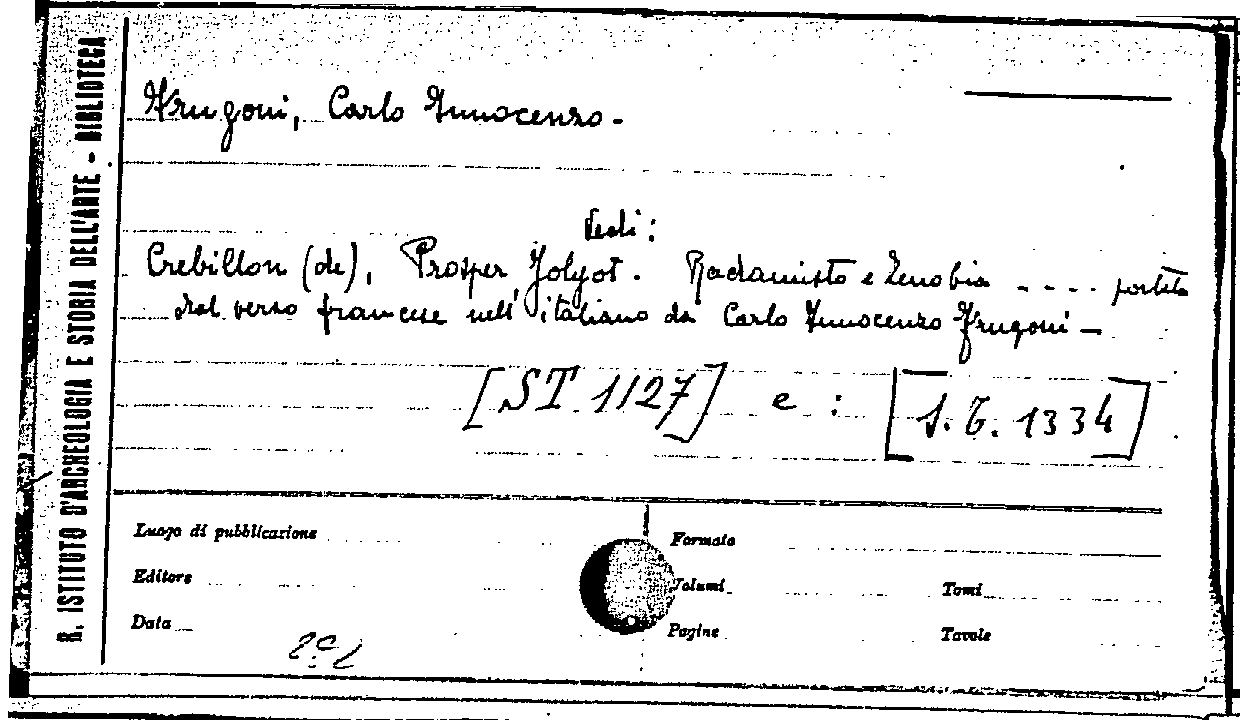 R. ISTITUTO D'ARCHEOLOGIA E STORIA DELL'ARTE - BIBLIOTECA
Frugoni, Carlo Innocenzo -
Vedi :
Crebillon (de), Prosper Jolyot. Radamisto e Zenobia - - - - portata
dal verso francese nell' italiano da Carlo Innocenzo Frugoni -
[ST 1127] e : [S. T. 1334]
Luogo di pubblicazione Formato
Editore Volumi Tomi
Data Pagine Tavole